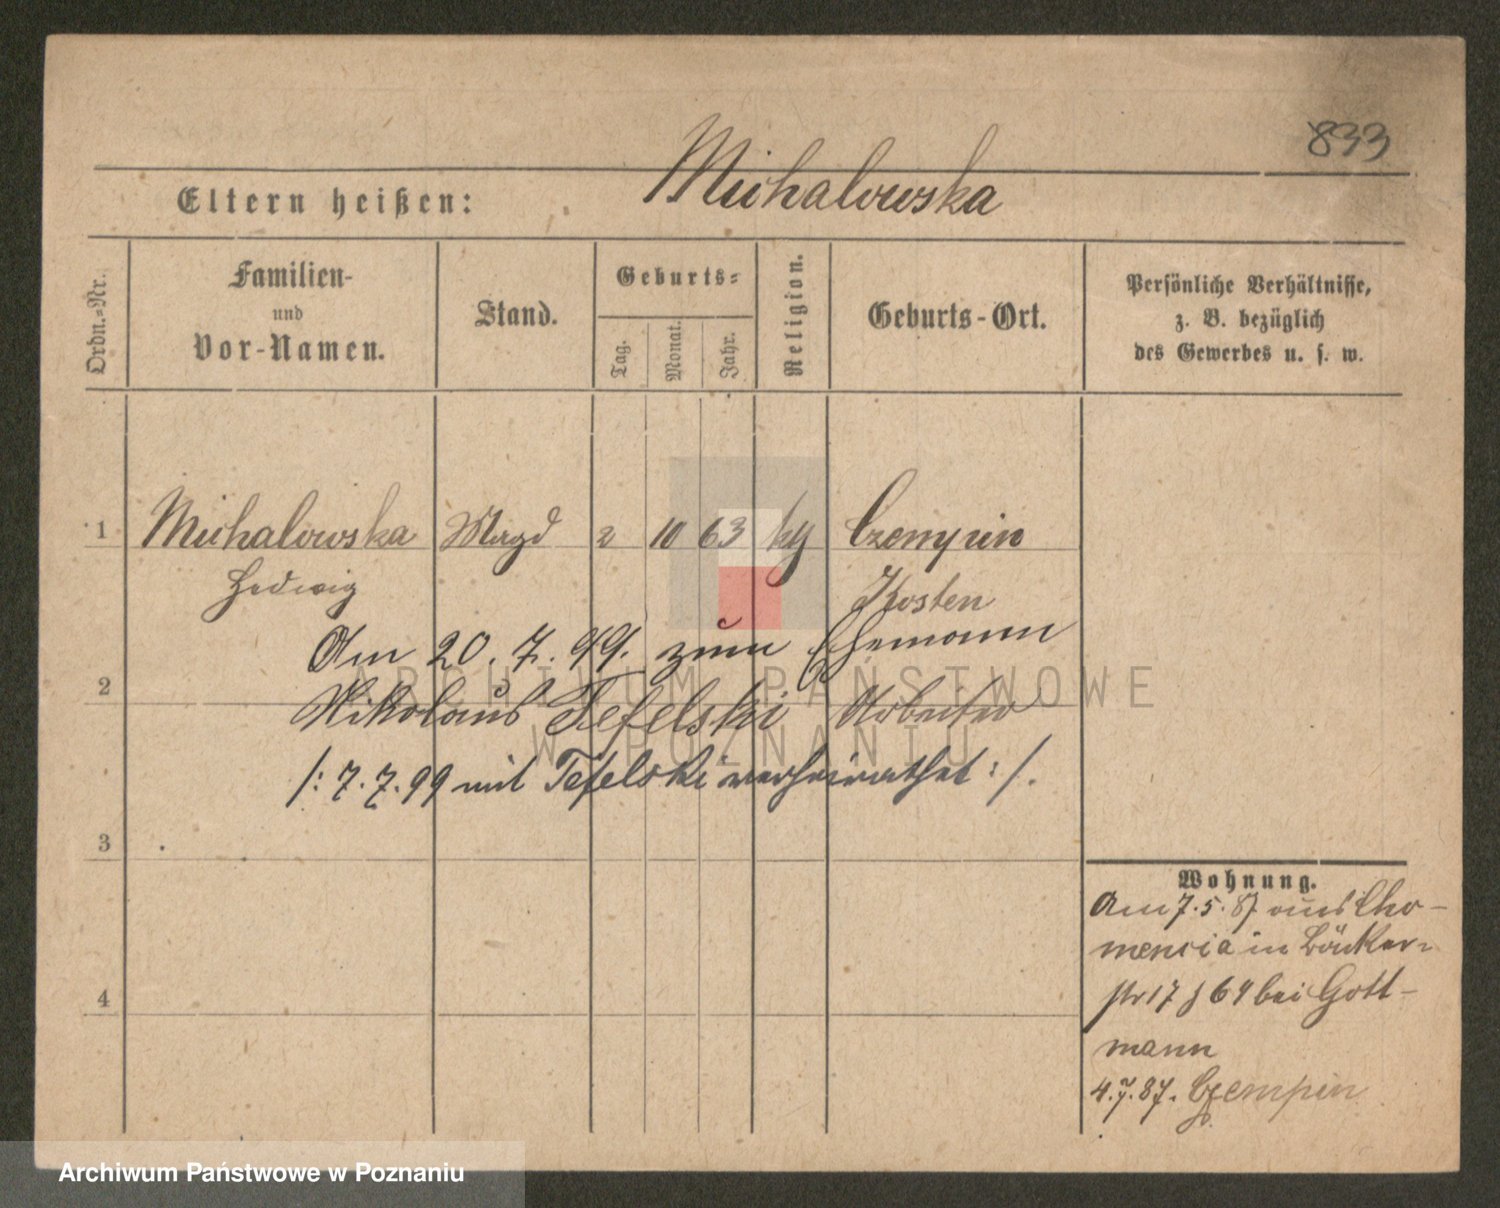 833
Michalowska
Eltern heißen:
Ordn.-Nr.
Familien-
und
Vor-Namen.
Stand.
Geburts-
Tag.
Monat.
Jahr.
Religion.
Geburts-Ort.
Persönliche Verhältnisse,
z. B. bezüglich
des Gewerbes u. s. w.
1 Michalowska Magd 2 10 63 Czempin
Hedwig Kosten
Am 20. 7. 99. zum Ehemann
2
Nikolaus Tefelski Arbeiter
/: 7. 7. 99 mit Tefelski verheirathet :/.
3
4
Wohnung.
Am 7. 5. 87 aus Cho-
mencia in Bäcker-
str 17 bei Gott-
mann
4. 7. 87. Czempin
ARCHIWUM PAŃSTWOWE
W POZNANIU
Archiwum Państwowe w Poznaniu